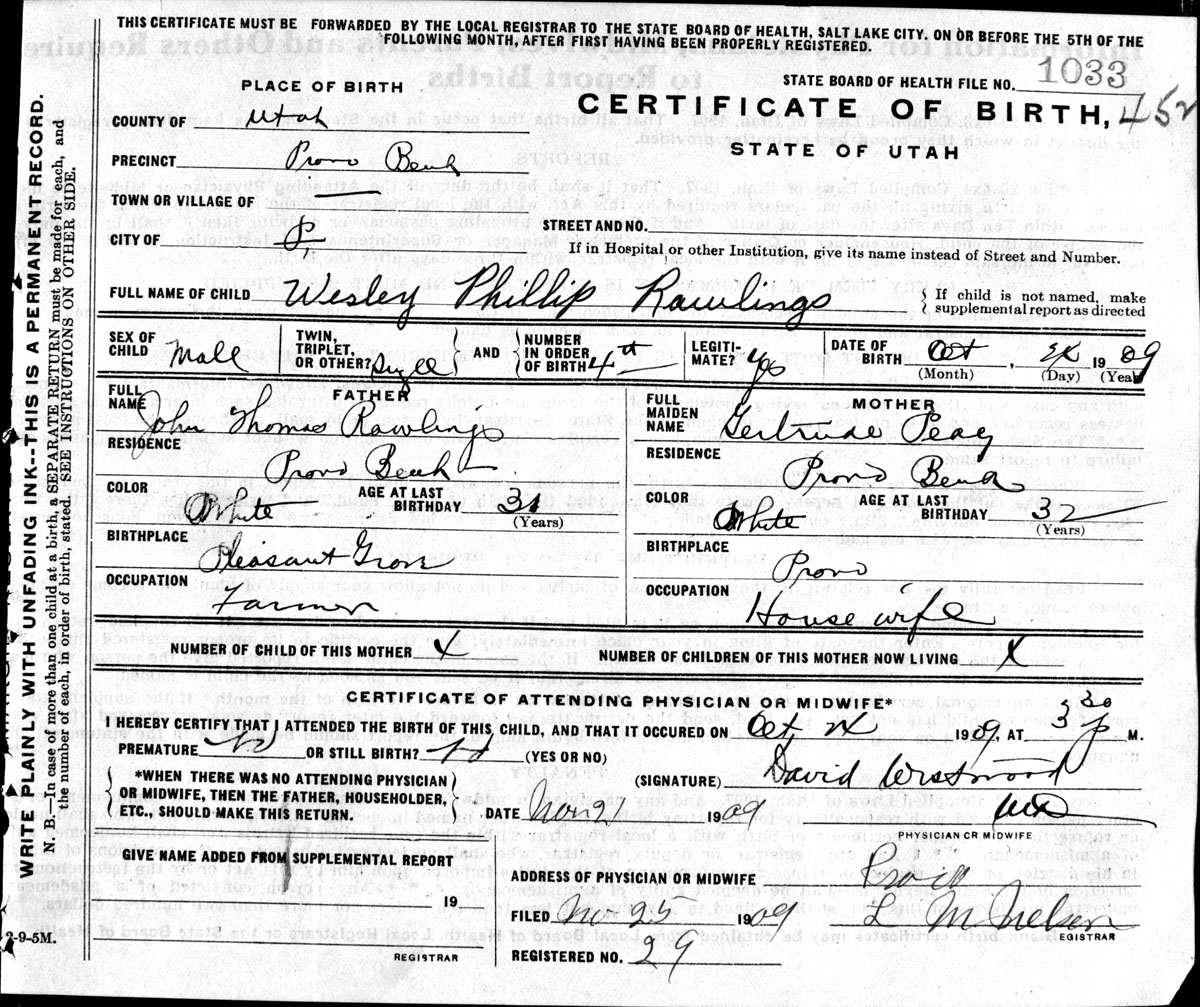 THIS CERTIFICATE MUST BE FORWARDED BY THE LOCAL REGISTRAR TO THE STATE BOARD OF HEALTH, SALT LAKE CITY, ON OR BEFORE THE 5TH OF THE
FOLLOWING MONTH, AFTER FIRST HAVING BEEN PROPERLY REGISTERED.
STATE BOARD OF HEALTH FILE NO. 1033
PLACE OF BIRTH
CERTIFICATE OF BIRTH, 452
STATE OF UTAH
COUNTY OF Utah
PRECINCT Provo Bench
TOWN OR VILLAGE OF
CITY OF P
STREET AND NO.
If in Hospital or other Institution, give its name instead of Street and Number.
FULL NAME OF CHILD Wesley Phillip Rawlings
If child is not named, make
supplemental report as directed
SEX OF
CHILD Male
TWIN,
TRIPLET,
OR OTHER?
AND
NUMBER
IN ORDER
OF BIRTH 4th
LEGITI-
MATE? yes
DATE OF
BIRTH Oct , 1909
(Month) (Day) (Year)
FATHER
FULL
NAME John Thomas Rawlings
RESIDENCE
Provo Bench
COLOR White
AGE AT LAST
BIRTHDAY 31
(Years)
BIRTHPLACE
Pleasant Grove
OCCUPATION
Farmer
MOTHER
FULL
MAIDEN
NAME Gertrude Peay
RESIDENCE
Provo Bench
COLOR White
AGE AT LAST
BIRTHDAY 32
(Years)
BIRTHPLACE
Provo
OCCUPATION
House wife
NUMBER OF CHILD OF THIS MOTHER 4
NUMBER OF CHILDREN OF THIS MOTHER NOW LIVING 4
CERTIFICATE OF ATTENDING PHYSICIAN OR MIDWIFE*
I HEREBY CERTIFY THAT I ATTENDED THE BIRTH OF THIS CHILD, AND THAT IT OCCURED ON Oct, 1909, AT 3 30 P M.
PREMATURE No OR STILL BIRTH? No (YES OR NO)
*WHEN THERE WAS NO ATTENDING PHYSICIAN
OR MIDWIFE, THEN THE FATHER, HOUSEHOLDER,
ETC., SHOULD MAKE THIS RETURN.
(SIGNATURE) David Westwood
MD
PHYSICIAN OR MIDWIFE
DATE Nov 2 1909
GIVE NAME ADDED FROM SUPPLEMENTAL REPORT
19
REGISTRAR
ADDRESS OF PHYSICIAN OR MIDWIFE Provo
FILED Nov 25 1909 L M Nelson
REGISTRAR
REGISTERED NO. 29
2-9-5M.
WRITE PLAINLY WITH UNFADING INK--THIS IS A PERMANENT RECORD.
N. B.—In case of more than one child at a birth, a SEPARATE RETURN must be made for each, and
the number of each, in order of birth, stated. SEE INSTRUCTIONS ON OTHER SIDE.